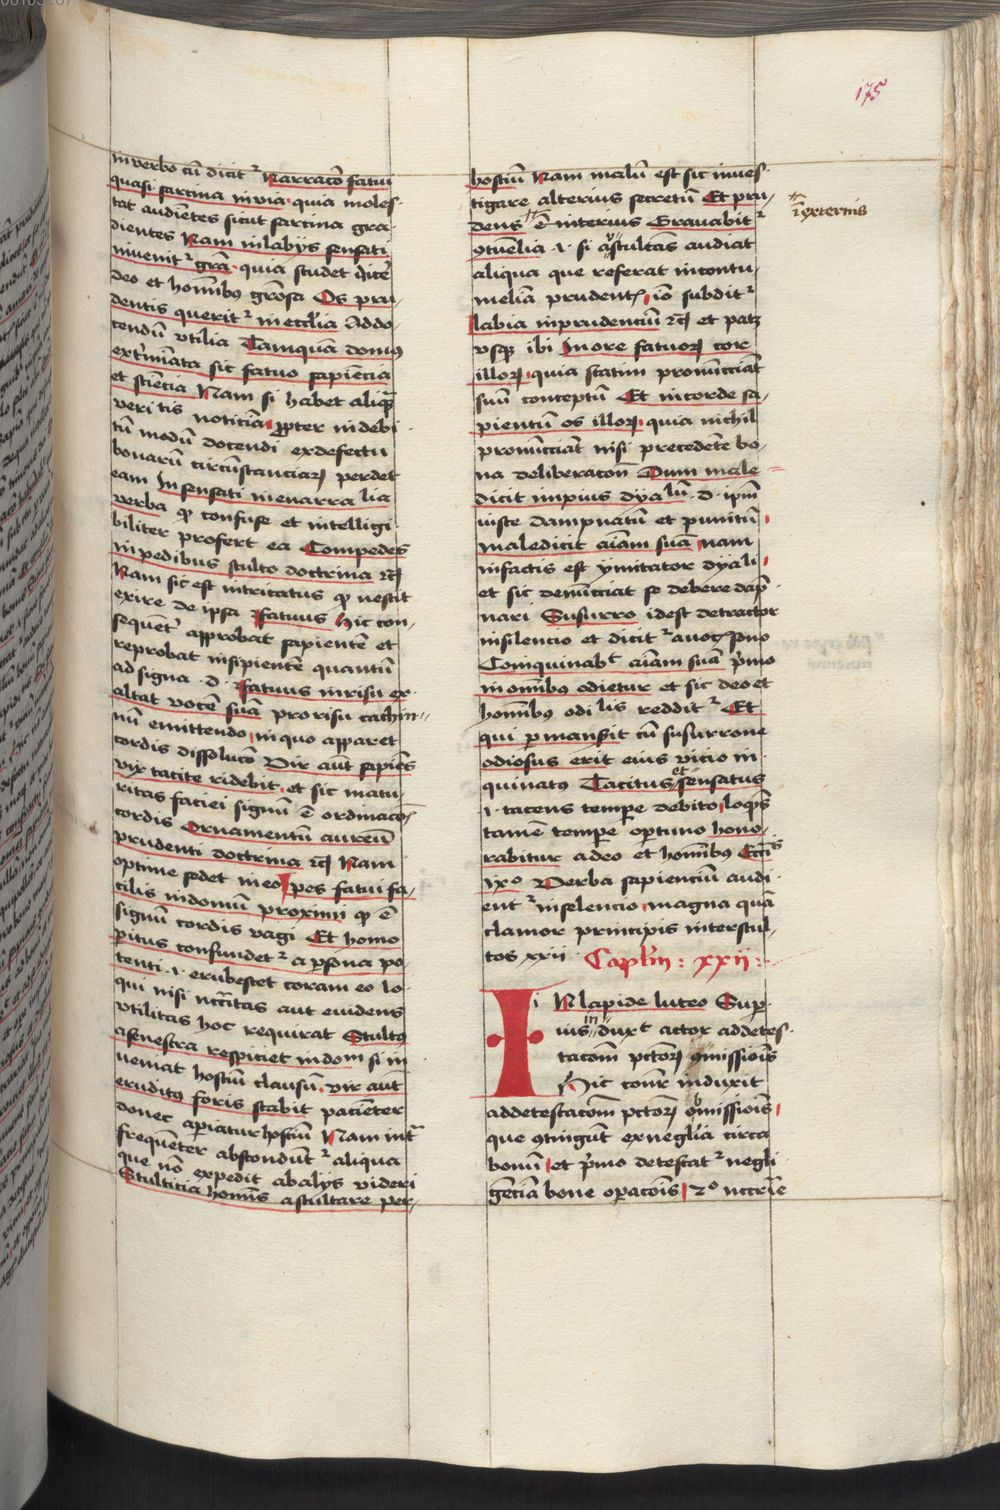 175
in verbo cu᷑ dicit᷑ Narraco᷑ fatui
quasi sarcina in via quia moles
tat audie᷑tes sicut sarcina gra
dientes Nam in labijs sensati
inuenit᷑ gr̄a quia studet dice᷑
deo et homi᷑bus gr̄osa Os pru
dentis querit᷑ in eccl̄ia Addo
cendu᷑ vtilia Tamqua᷑ domus
exter᷑minata sic fatuo sapiencia
et scie᷑cia Nam si habet aliqua᷑
veritatis noticia᷑ propter indebi
tu᷑ modu᷑ docendi ex defectu
bonaru᷑ circu᷑stanciar᷑ perdet
eam Insensati inenarrabilia
verba q᷑ confuse et intelligi
biliter profert ea Compedes
in pedibus stulto doctrina rc᷑
Nam sic est intricatus q᷑ nescit
exire de ipsa Fatuus Hic con
sequent᷑ approbat sapiente᷑ et
reprobat insipiente᷑ quantu᷑
ad signa .d. Fatuus in risu ex
altat voce᷑ sua᷑ pro risu cachin
nu᷑ emittendo in quo apparet
cordis dissoluco᷑ Vir aut᷑ sapie᷑s
vix tacite ridebit et sic matu
ritas faciei signu᷑ e᷑ ordinaco᷑
cordis Ornamentu᷑ aureu᷑
prudenti doctrina rc᷑ Nam
optime sedet in eo pes fatui fa
cilis in domum proximi q᷑ e᷑
signu᷑ cordis vagi Et homo
peritus confundet᷑ a persona po
tenti .i. erubescet coram eo lo
qui nisi necessitas aut euidens
vtilitas hoc requirat Stultus
a fenestra respiciet in dom si in
ueniat hostiu᷑ clausu᷑ vir aut᷑
eruditus foris stabit pacie᷑ter
donec aperiatur hostiu᷑ Nam int᷑
freque᷑ter abscondu᷑t᷑ aliqua
que no᷑ expedit ab alijs videri
Stulticia homi᷑s ascultare per
hostiu᷑ Nam malu᷑ est sic inues
tigare alterius secretu᷑ Et pru
dens e᷑ interius Grauabit᷑
externis
9tumelia .i. si ascultans audiat
aliqua que referat in contu
melia᷑ prudent᷑ io᷑ subdit᷑
labia inprudenciu᷑ rc᷑ et patz
vsq᷑ ibi In ore fatuor᷑ cor
illor᷑ quia statim pronu᷑cciat
suu᷑ conceptu᷑ Et in corde sa
pientiu᷑ os illor᷑ quia nichil
pronu᷑cciat nisi precedente bo
na deliberacon᷑ Dum male
dicit inpius dyabolu᷑ .d. ipm᷑
iuste dampnatu᷑ et punitu᷑
maledicit aia᷑m sua᷑ nam
in factis est ymitator dyaboli
et sic denu᷑cciat se debere dap᷑
nari Susurro idest detractor
in silencio et dicit᷑
Coinquinabit aia᷑m sua᷑ pri᷑mo
in omi᷑bus odietur et sic deo et
homi᷑bus odibilis reddit᷑ Et
qui permanserit cu᷑ susurrone
odiosus erit eius vitio in
quinatus Tacitus et sensatus
.i. tacens tempe᷑ debito loque᷑s
tame᷑ tempe᷑ optimo hono
rabitur a deo et homi᷑bus Eccl᷑s
ix° Verba sapienciu᷑ audi
ent᷑ in silencio magna qua᷑
clamor principis inter stul
tos xxii Caplm᷑ : xxij :
IN lapide luteo Super
ius in dux᷑t actor ad detes
tacom᷑ pctor᷑ 9missiois᷑
Hic conr᷑ induxit
ad detestacom᷑ pctor᷑ omissiois᷑
que 9tingu᷑t ex neglige᷑cia circa
bonu᷑ et pri᷑mo detestat᷑ negli
ge᷑cia᷑ bone operacois᷑ 2°